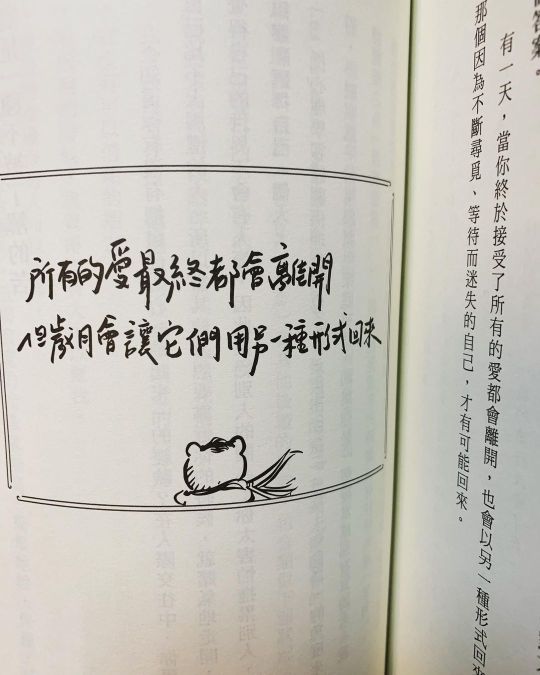 有一天，當你終於接受了所有的愛都會離開，也會以另一種形式回來
那個因為不斷尋覓、等待而迷失的自己，才有可能回來。
所有的愛最終都會離開
但歲月會讓它們用另一種形式回來